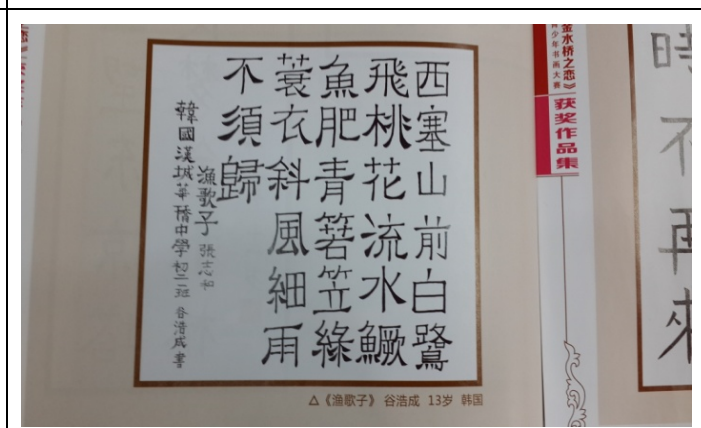 西塞山前白鷺
飛桃花流水鱖
魚肥青箬笠綠
蓑衣斜風細雨
不須歸
漁歌子 張志和
韓國漢城華僑中學初二班 谷浩成書
△《渔歌子》 谷浩成 13岁 韩国
金水桥之恋》
青少年书画大赛
获奖作品集
時不再來